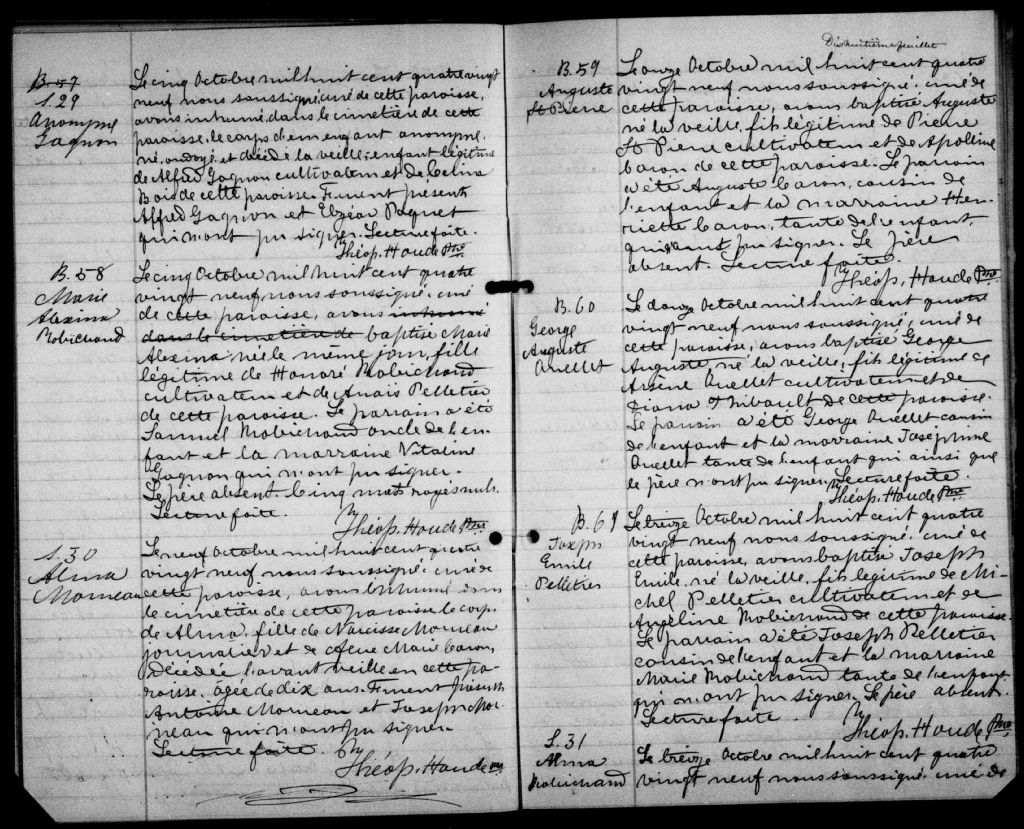 B. 57
S. 29
Anonyme
Gagnon
Le cinq Octobre mil huit cent quatre vingt
neuf nous soussigné, curé de cette paroisse,
avons inhumé, dans le cimetière de cette
paroisse, le corps d'un enfant anonyme,
né, ondoyé et décédé la veille, enfant légitime
de Alfred Gagnon cultivateur et de Celina
Bois de cette paroisse. Furent présents
Alfred Gagnon et Elzéar Paquet
qui n'ont pu signer. Lecture faite.
Théop. Houde Ptre
B. 58
Marie
Alexina
Robichaud
Le cinq Octobre mil huit cent quatre
vingt neuf, nous soussigné, curé
de cette paroisse, avons inhumé
dans le cimetière de baptisé Marie
Alexina née le même jour, fille
légitime de Honoré Robichaud
cultivateur et de Anaïs Pelletier
de cette paroisse. Le parrain a été
Samuel Robichaud oncle de l'en-
fant et la marraine Vitaline
Gagnon qui n'ont pu signer.
Le père absent. Cinq mots rayés nuls.
Lecture faite.
Théop. Houde Ptre
S. 30
Alma
Morneau
Le neuf Octobre mil huit cent quatre
vingt neuf nous soussigné, curé de
cette paroisse, avons inhumé dans
le cimetière de cette paroisse le corps
de Alma, fille de Narcisse Morneau
journalier et de Marie Caron,
décédée l'avant veille en cette pa-
roisse, agée de dix ans. Furent présents
Antoine Morneau et Joseph Mor-
neau qui n'ont pu signer.
Lecture faite.
Théop. Houde
Dix huitième feuillet
B. 59
Auguste
St Pierre
Le onze Octobre mil huit cent quatre
vingt neuf, nous soussigné, curé de
cette paroisse, avons baptisé Auguste
né la veille, fils légitime de Pierre
St Pierre cultivateur et de Apolline
Caron de cette paroisse. Le parrain
a été Auguste Caron, cousin de
l'enfant et la marraine Hen-
riette Caron, tante de l'enfant,
qui n'ont pu signer. Le père
absent. Lecture faite.
Théop. Houde Ptre
B. 60
George
Auguste
Ouellet
Le douze Octobre mil huit cent quatre
vingt neuf nous soussigné, curé de
cette paroisse, avons baptisé George
Auguste, né la veille, fils légitime de
Arsène Ouellet cultivateur et de
Diana Thibault de cette paroisse.
Le parrain a été George Ouellet cousin
de l'enfant et la marraine Joséphine
Ouellet tante de l'enfant qui ainsi que
le père n'ont pu signer. Lecture faite.
Théop. Houde Ptre
B. 61
Joseph
Emile
Pelletier
Le treize Octobre mil huit cent quatre
vingt neuf nous soussigné, curé de
cette paroisse, avons baptisé Joseph
Emile, né la veille, fils légitime de Mi-
chel Pelletier cultivateur et de
Angéline Robichaud de cette paroisse.
Le parrain a été Joseph Pelletier
cousin de l'enfant et la marraine
Marie Robichaud tante de l'enfant
qui n'ont pu signer. Le père absent.
Lecture faite.
Théop. Houde Ptre
S. 31
Alma
Robichaud
Le treize Octobre mil huit cent quatre
vingt neuf nous soussigné, curé de